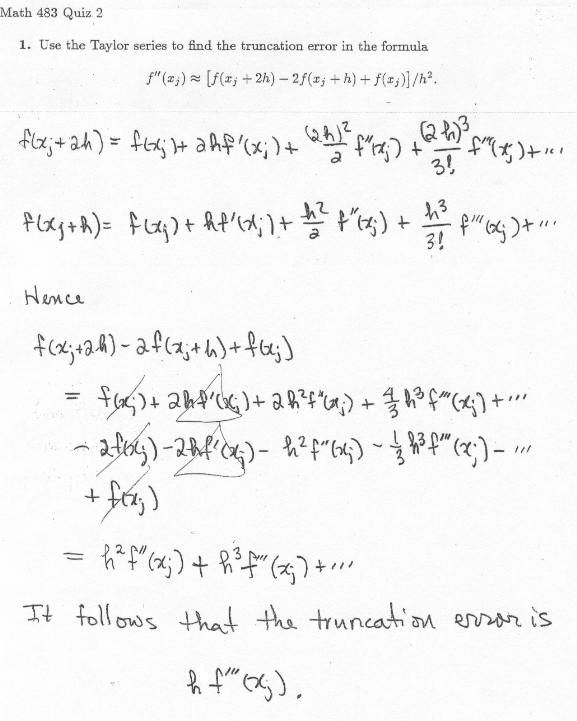 Math 483 Quiz 2
1. Use the Taylor series to find the truncation error in the formula
f″(x_j) ≈ [f(x_j + 2h) − 2f(x_j + h) + f(x_j)]/h².
f(x_j+2h) = f(x_j) + 2hf'(x_j) + (2h)²/2 f″(x_j) + (2h)³/3! f‴(x_j) + ...
f(x_j+h) = f(x_j) + hf'(x_j) + h²/2 f″(x_j) + h³/3! f‴(x_j) + ...
Hence
f(x_j+2h) − 2f(x_j+h) + f(x_j)
= f(x_j) + 2hf'(x_j) + 2h²f″(x_j) + 4/3 h³f‴(x_j) + ...
− 2f(x_j) − 2hf'(x_j) − h²f″(x_j) − 1/3 h³f‴(x_j) − ...
+ f(x_j)
= h²f″(x_j) + h³f‴(x_j) + ...
It follows that the truncation error is
h f‴(x_j).